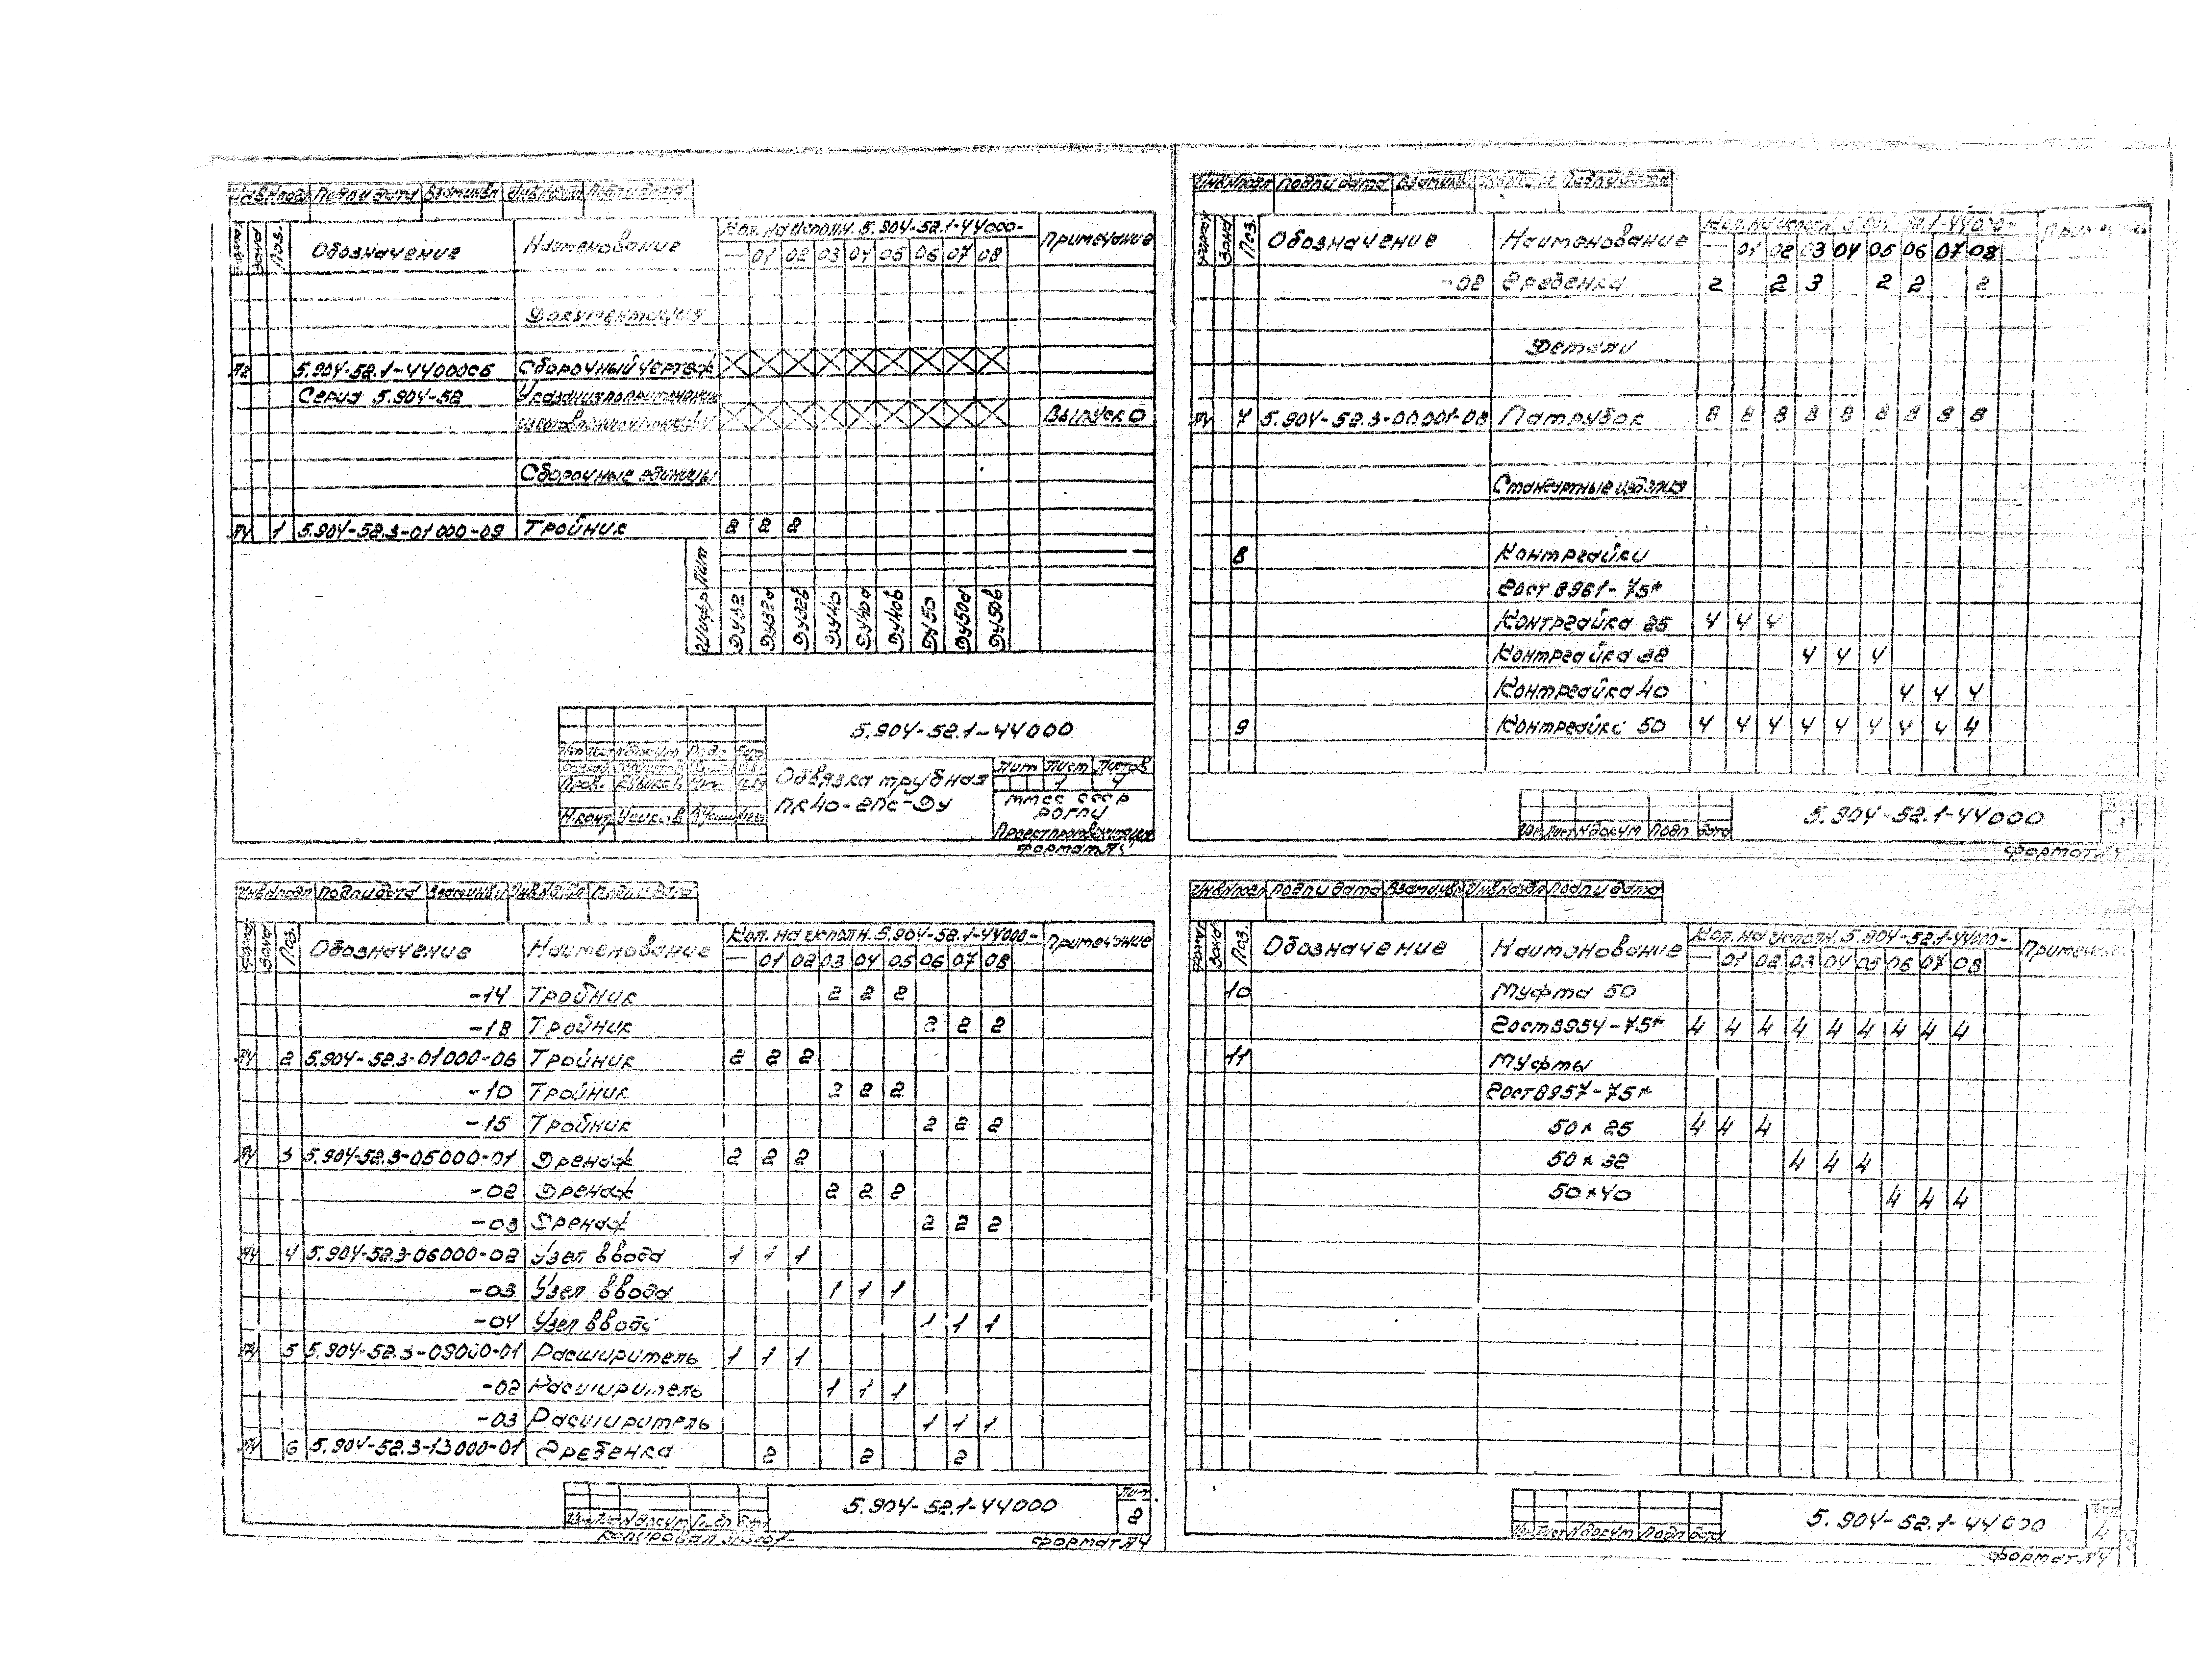 Инв.Nподл Подпи дата Взам инвN Подпи дата
Формат Зона Поз. Обозначение Наименование Кол. на исполн. 5.904-52.1-44000- Примечание
— 01 02 03 04 05 06 07 08
Документация
А2 5.904-52.1-44000СБ Сборочный чертеж
Серия 5.904-52 Указания по применению
изготовлению и монтажу Выпуск 0
Сборочные единицы
А4 1 5.904-52.3-01000-09 Тройник 2 2 2
Лит
Шифр ДУ32 ДУ32а ДУ32в ДУ40 ДУ40а ДУ40в ДУ50 ДУ50а ДУ50в
5.904-52.1-44000
Изм Лист Nдокум Подп Дата
Пров.
Н.контр Усиков
Обвязка трубная
ПК40-2ПС-ДУ
Лит Лист Листов
1 4
ММСС СССР
РОГПИ
Проектпромвентиляция
Формат А4
Инв.Nподл Подпи дата Взам инвN Инв.Nдубл Подпи дата
Формат Зона Поз. Обозначение Наименование Кол. на исполн. 5.904-52.1-44000- Примечание
— 01 02 03 04 05 06 07 08
-14 Тройник 2 2 2
-18 Тройник 2 2 2
А4 2 5.904-52.3-01000-06 Тройник 2 2 2
-10 Тройник 2 2 2
-15 Тройник 2 2 2
А4 3 5.904-52.3-05000-01 Дренаж 2 2 2
-02 Дренаж 2 2 2
-03 Дренаж 2 2 2
А4 4 5.904-52.3-06000-02 Узел ввода 1 1 1
-03 Узел ввода 1 1 1
-04 Узел ввода 1 1 1
А4 5 5.904-52.3-09000-01 Расширитель 1 1 1
-02 Расширитель 1 1 1
-03 Расширитель 1 1 1
А4 6 5.904-52.3-13000-01 Гребенка 2 2 2
Изм Лист Nдокум Подп Дата
5.904-52.1-44000
Лист
2
Копировал
Формат А4
Инв.Nподл Подпи дата Взам инвN Подпи дата
Формат Зона Поз. Обозначение Наименование Кол. на исполн. 5.904-52.1-44000- Примечание
— 01 02 03 04 05 06 07 08
-02 Гребенка 2 2 3 2 2 2
Детали
А4 7 5.904-52.3-00001-08 Патрубок 8 8 8 8 8 8 8 8 8
Стандартные изделия
8 Контргайки
Гост 8961-75*
Контргайка 25 4 4 4
Контргайка 32 4 4 4
Контргайка 40 4 4 4
9 Контргайка 50 4 4 4 4 4 4 4 4 4
Изм Лист Nдокум Подп Дата
5.904-52.1-44000
3
Формат А4
Инв.Nподл Подпи дата Взам инвN Инв.Nдубл Подпи дата
Формат Зона Поз. Обозначение Наименование Кол. на исполн. 5.904-52.1-44000- Примечание
— 01 02 03 04 05 06 07 08
10 Муфта 50
Гост 8954-75* 4 4 4 4 4 4 4 4 4
11 Муфты
Гост 8957-75*
50×25 4 4 4
50×32 4 4 4
50×40 4 4 4
Изм Лист Nдокум Подп Дата
5.904-52.1-44000
4
Формат А4